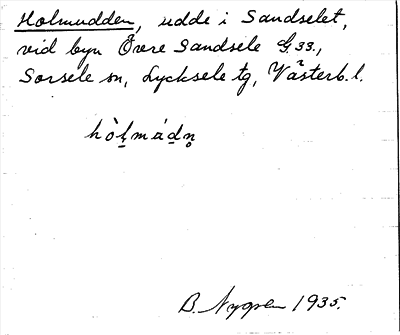 Holmudden, udde i Sandselet,
vid byn Övre Sandsele G.33.,
Sorsele sn, Lycksele tg, Västerb. l.
B. Nygren 1935.